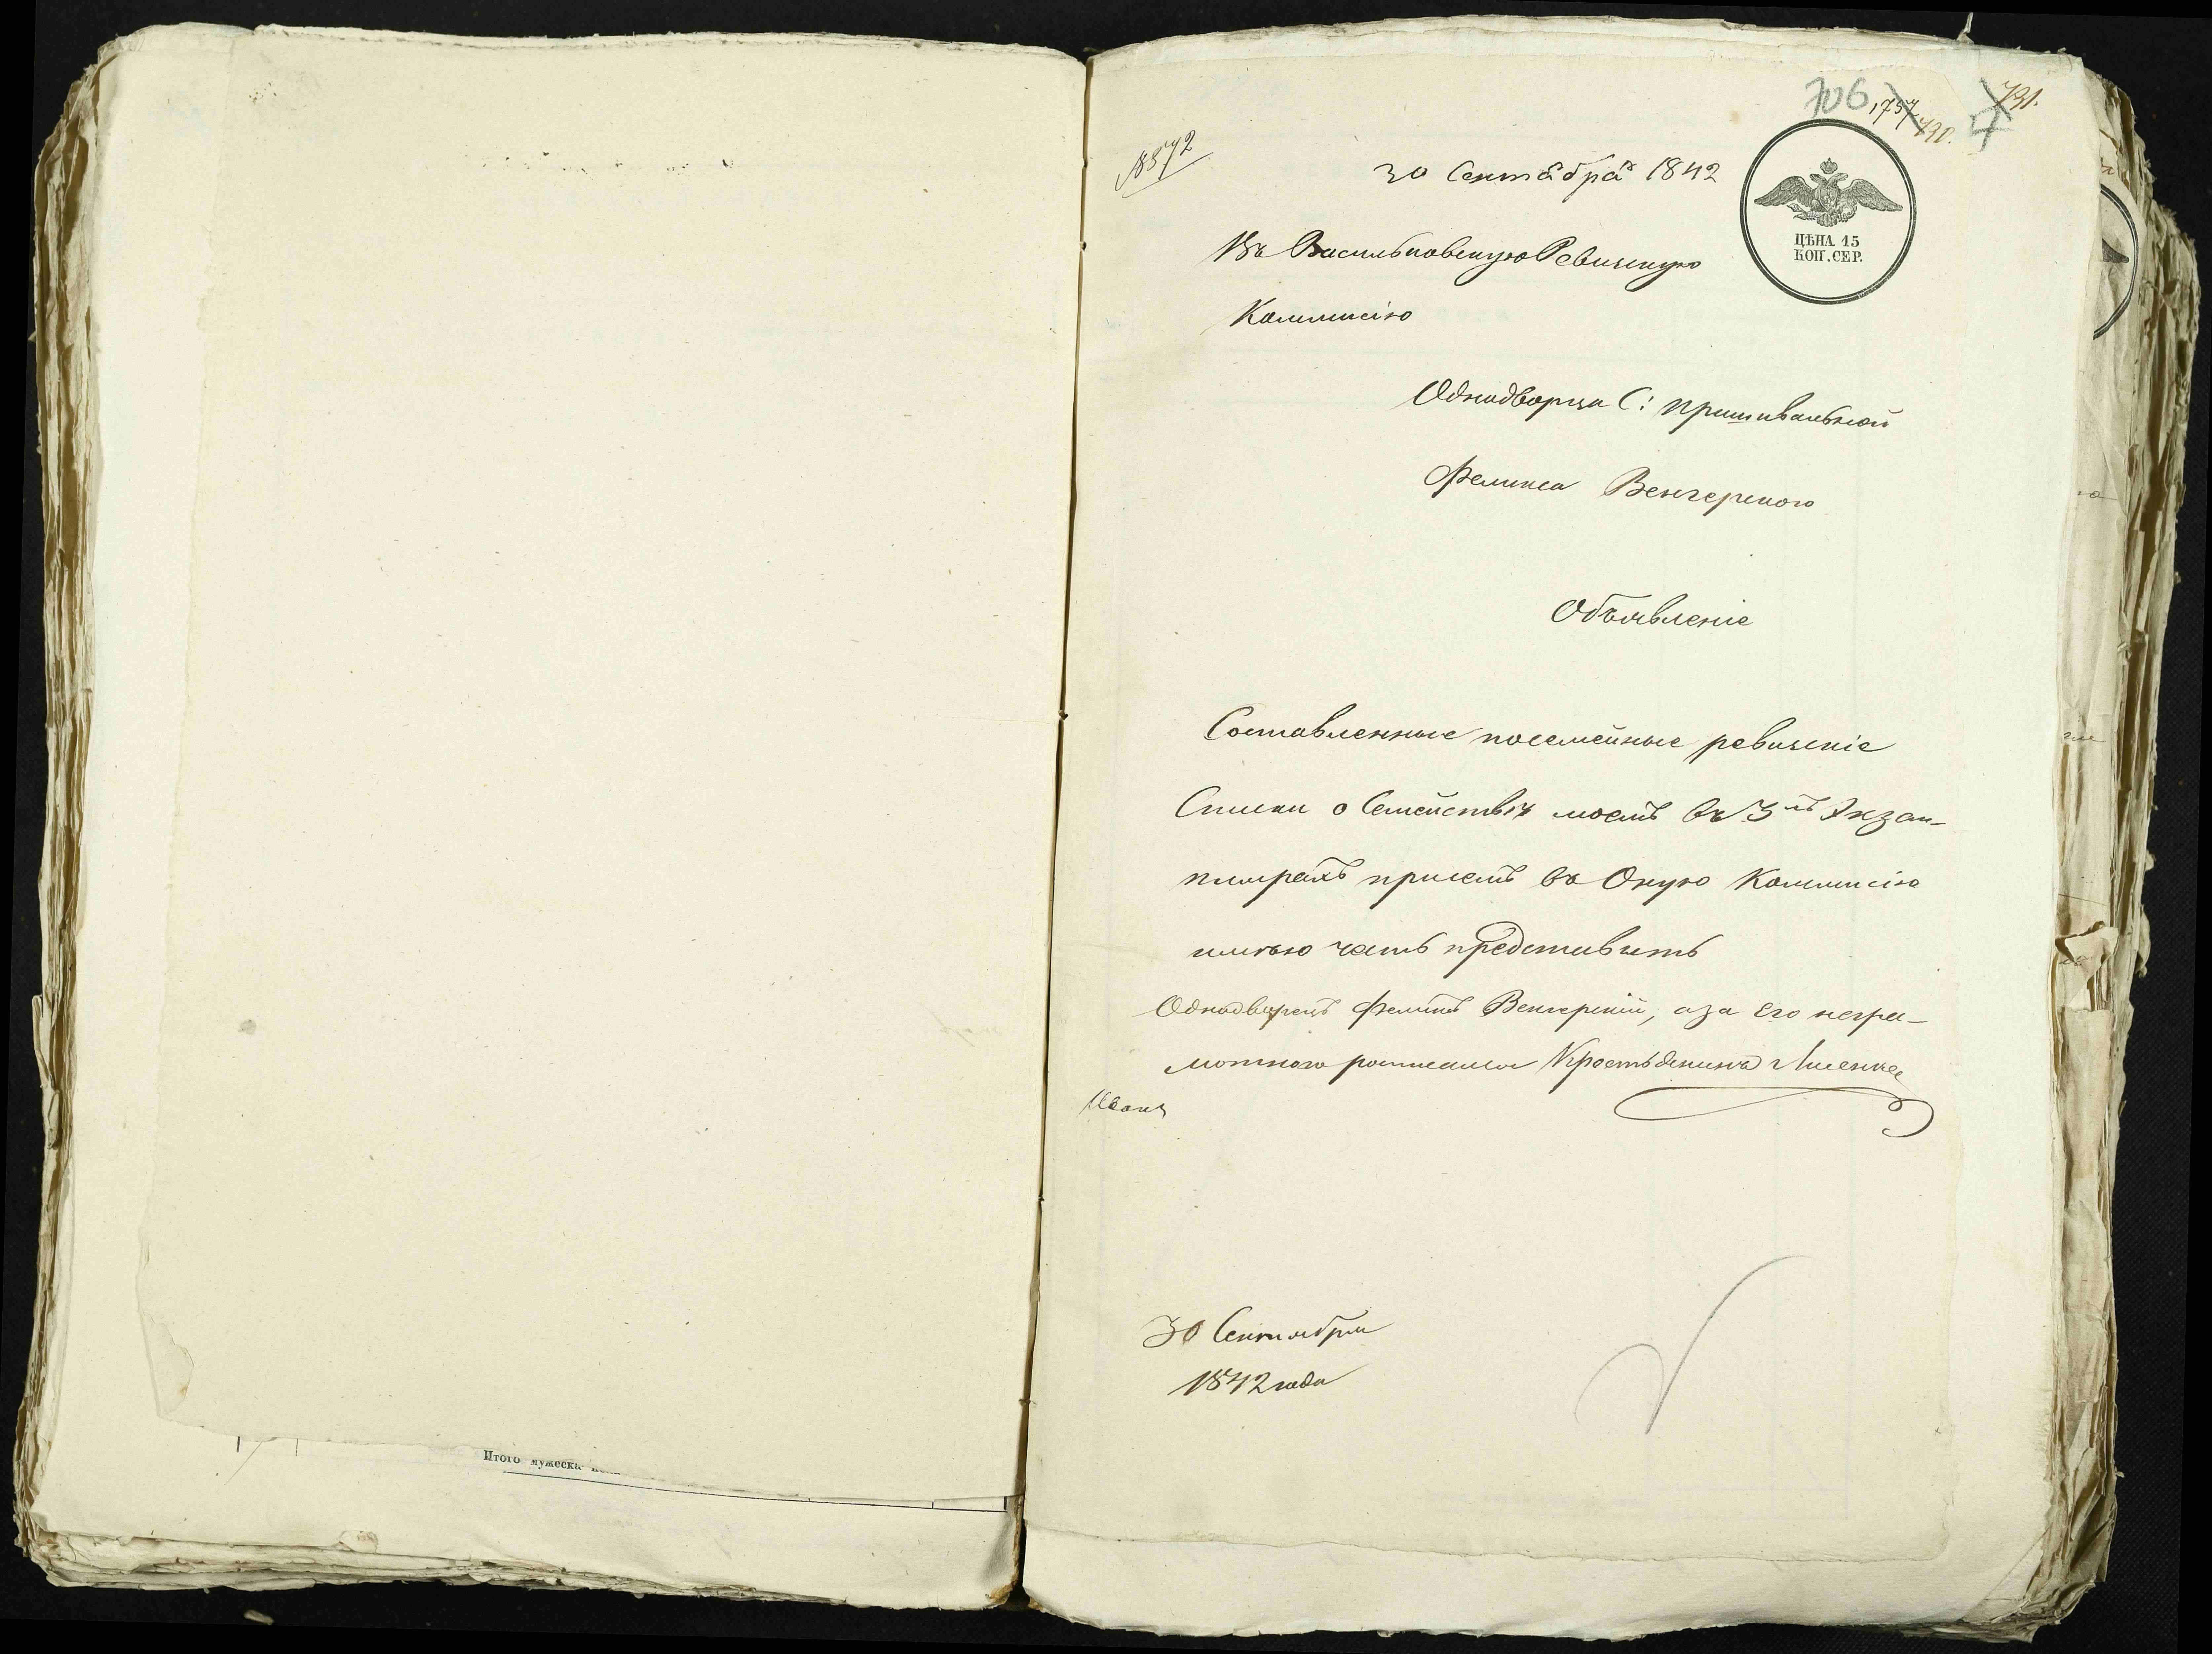 Итого мужеска
706
731.
30 Сентября 1842
ЦѢНА 15
КОП. СЕР.
Въ Васильковскую Ревизскую
Коммисію
Однодворца С: Пришивальной
Феликса Венгерского
Объявленіе
Составленные посемейные ревизскіе
Списки о Семействѣ моемъ въ 3хъ Экзем-
плярахъ присемъ въ Оную Коммисію
имѣю честь представить
Однодворецъ Феликсъ Венгерскій, а за его негра-
мотного росписался Крестьянинъ
Иванъ
30 Сентября
1842 года